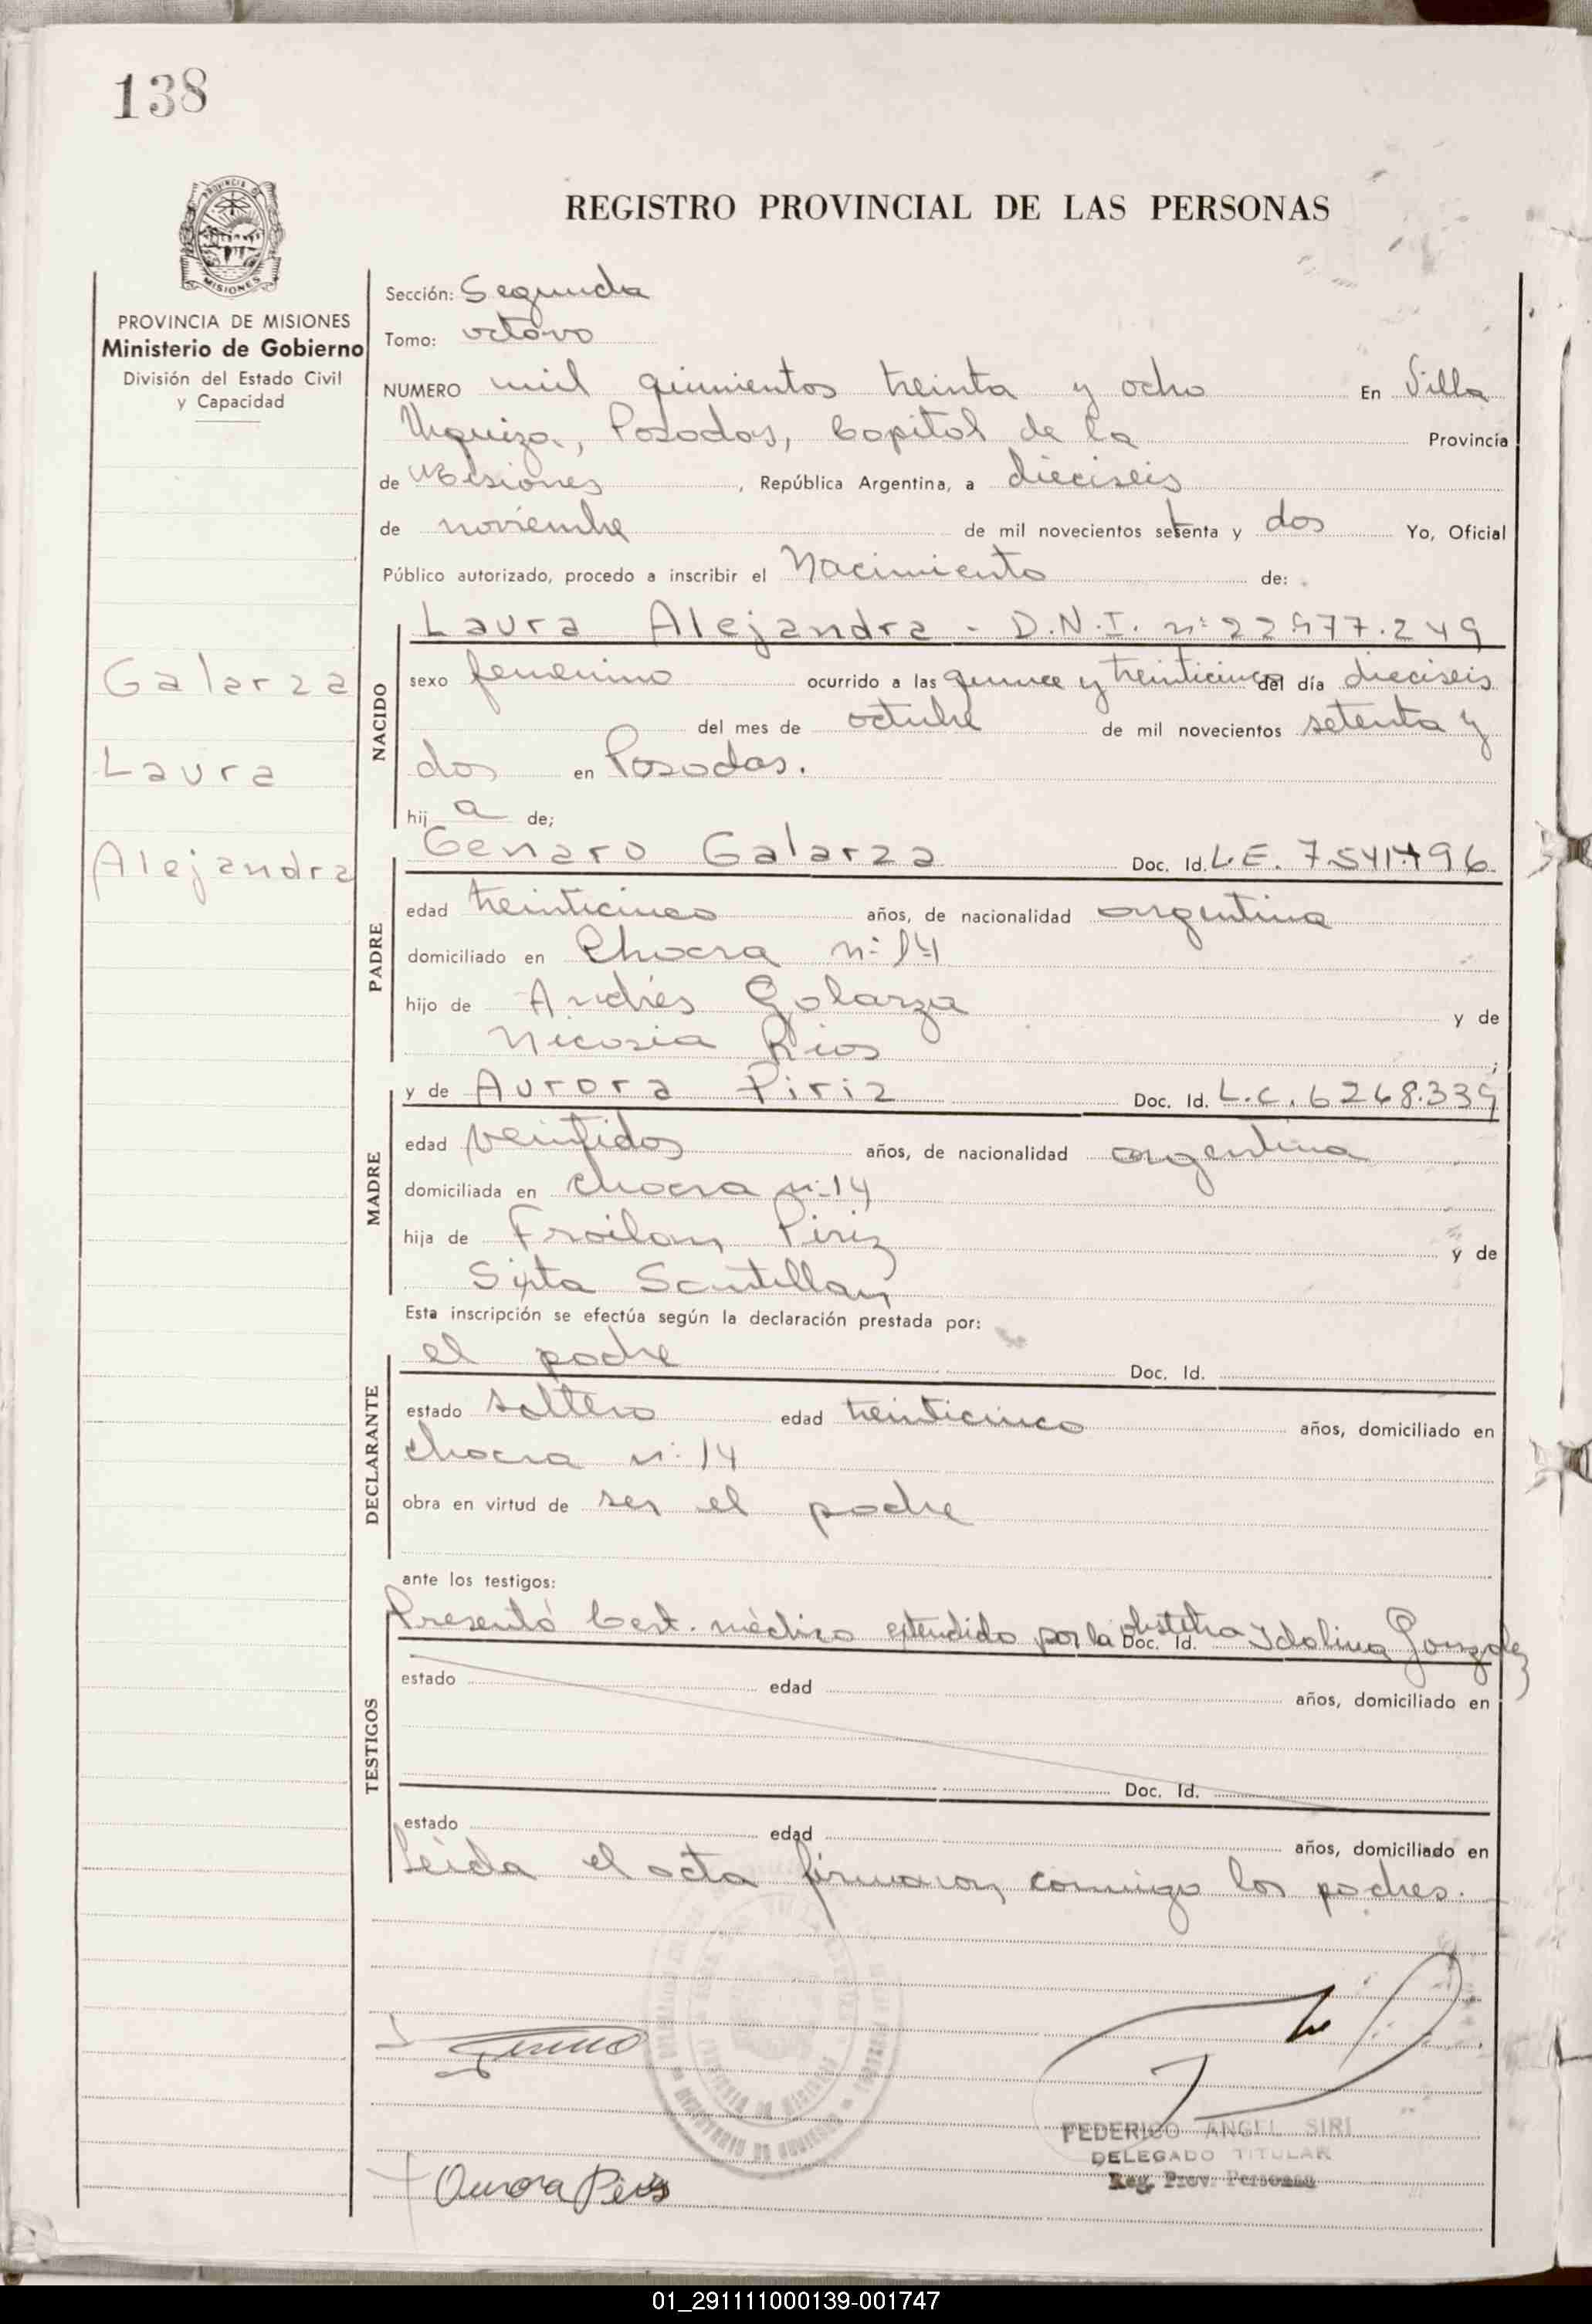 138
PROVINCIA DE MISIONES
MISIONES
REGISTRO PROVINCIAL DE LAS PERSONAS
PROVINCIA DE MISIONES
Ministerio de Gobierno
División del Estado Civil
y Capacidad
Galarza
Laura
Alejandra
Sección: Segunda
Tomo: octavo
NUMERO mil quinientos treinta y ocho En Villa
Urquiza, Posadas, Capital de la Provincia
de Misiones, República Argentina, a dieciseis
de noviembre de mil novecientos setenta y dos Yo, Oficial
Público autorizado, procedo a inscribir el Nacimiento de:
NACIDO
Laura Alejandra - D.N.I. nº 22.977.249
sexo femenino ocurrido a las quince y treinticinco del día dieciseis
del mes de octubre de mil novecientos setenta y
dos en Posadas.
hij a de;
PADRE
Genaro Galarza Doc. Id. L.E. 7.541.496
edad treinticinco años, de nacionalidad argentina
domiciliado en Chacra nº 14
hijo de Andrés Galarza y de
Nicosia Rios ;
MADRE
y de Aurora Piriz Doc. Id. L.C. 6268.339
edad veintidos años, de nacionalidad argentina
domiciliada en chacra nº 14
hija de Froilan Piriz y de
Sixta Santillan
Esta inscripción se efectúa según la declaración prestada por:
DECLARANTE
el padre Doc. Id.
estado soltero edad treinticinco años, domiciliado en
chacra nº 14
obra en virtud de ser el padre
ante los testigos:
TESTIGOS
Presentó Cert. médico extendido por la obstetra Idolina Gonzalez Doc. Id.
estado edad años, domiciliado en
Doc. Id.
estado edad años, domiciliado en
Leida el acta firmaron conmigo los padres.
FEDERICO ANGEL SIRI
DELEGADO TITULAR
Reg. Prov. Personas
Aurora Piris
01_291111000139-001747